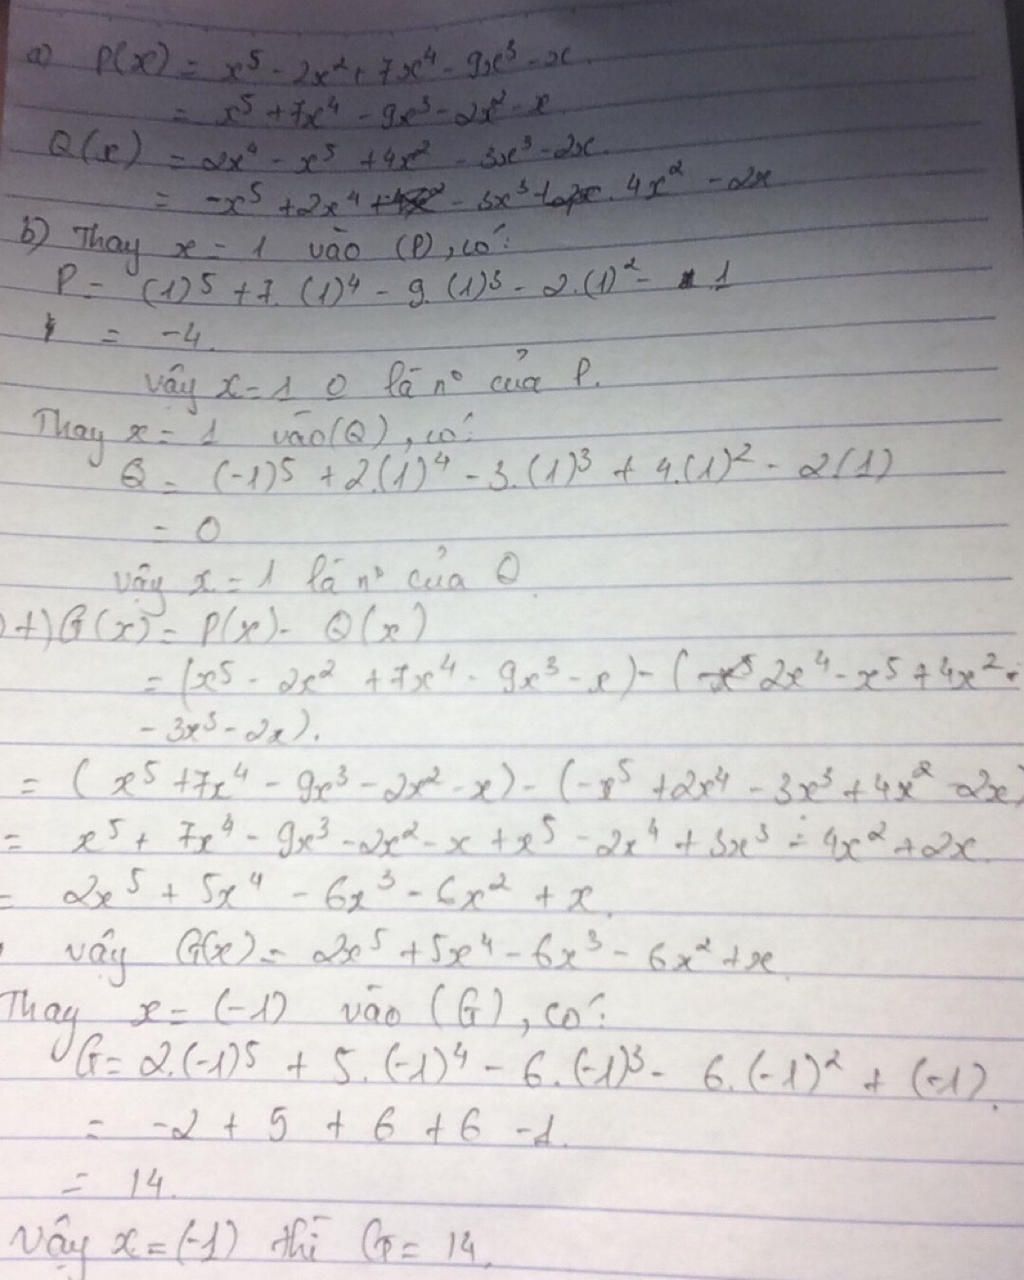 a) P(x) = x⁵ - 2x² + 7x⁴ - 9x³ - x
= x⁵ + 7x⁴ - 9x³ - 2x² - x
Q(x) = 2x⁴ - x⁵ + 4x² - 3x³ - 2x.
= -x⁵ + 2x⁴ - 3x³ + 4x² - 2x
b) Thay x = 1 vào (P), có:
P = (1)⁵ + 7.(1)⁴ - 9.(1)³ - 2.(1)² - 1
= -4.
Vậy x = 1 0 là nº của P.
Thay x = 1 vào (Q), có:
Q = (-1)⁵ + 2.(1)⁴ - 3.(1)³ + 4.(1)² - 2(1)
= 0
Vậy x = 1 là nº của Q
) +) G(x) = P(x) - Q(x)
= (x⁵ - 2x² + 7x⁴ - 9x³ - x) - (2x⁴ - x⁵ + 4x²
- 3x³ - 2x).
= (x⁵ + 7x⁴ - 9x³ - 2x² - x) - (-x⁵ + 2x⁴ - 3x³ + 4x² - 2x)
= x⁵ + 7x⁴ - 9x³ - 2x² - x + x⁵ - 2x⁴ + 3x³ - 4x² + 2x.
= 2x⁵ + 5x⁴ - 6x³ - 6x² + x.
Vậy G(x) = 2x⁵ + 5x⁴ - 6x³ - 6x² + x
Thay x = (-1) vào (G), có:
G = 2.(-1)⁵ + 5.(-1)⁴ - 6.(-1)³ - 6.(-1)² + (-1).
= -2 + 5 + 6 + 6 - 1.
= 14.
Vậy x = (-1) thì G = 14.